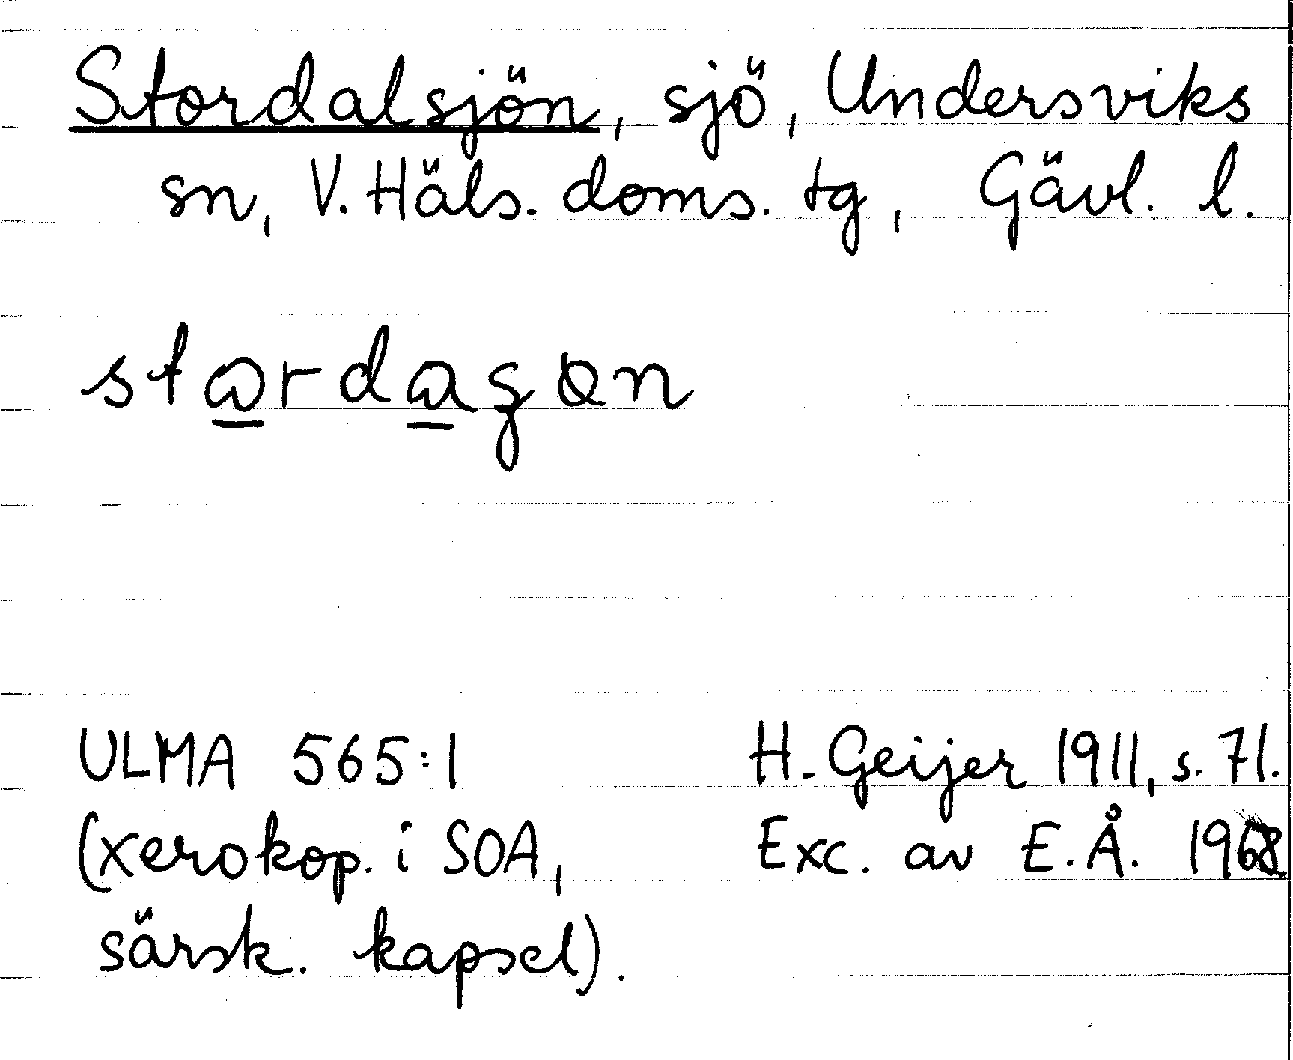 Stordalsjön, sjö, Undersviks
sn, V. Häls. doms. tg, Gävl. l.
ULMA 565:1
H. Geijer 1911, s. 71.
(xerokop. i SOA,
Exc. av E.Å. 1968.
särsk. kapsel).